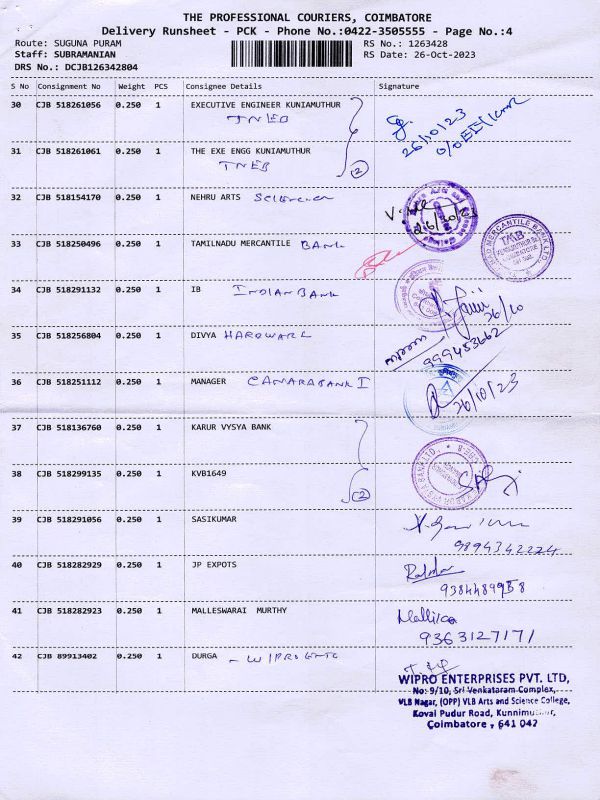 THE PROFESSIONAL COURIERS, COIMBATORE
Delivery Runsheet - PCK - Phone No.:0422-3505555 - Page No.:4
Route: SUGUNA PURAM RS No.: 1263428
Staff: SUBRAMANIAN RS Date: 26-Oct-2023
DRS No.: DCJB126342804
S No Consignment No Weight PCS Consignee Details Signature
30 CJB 518261056 0.250 1 EXECUTIVE ENGINEER KUNIAMUTHUR
TNEB
26/10/23
31 CJB 518261061 0.250 1 THE EXE ENGG KUNIAMUTHUR
TNEB
2
32 CJB 518154170 0.250 1 NEHRU ARTS
26/10/23
33 CJB 518250496 0.250 1 TAMILNADU MERCANTILE BANK
TMB
34 CJB 518291132 0.250 1 IB INDIAN BANK
26/10
35 CJB 518256804 0.250 1 DIVYA HARDWARE
999453662
36 CJB 518251112 0.250 1 MANAGER CANARA BANK
26/10/23
37 CJB 518136760 0.250 1 KARUR VYSYA BANK
38 CJB 518299135 0.250 1 KVB1649
2
39 CJB 518291056 0.250 1 SASIKUMAR
9894342224
40 CJB 518282929 0.250 1 JP EXPOTS
41 CJB 518282923 0.250 1 MALLESWARAI MURTHY
Mallika
9363127171
42 CJB 89913402 0.250 1 DURGA - WIPRO
WIPRO ENTERPRISES PVT. LTD,
No: 9/10, Sri Venkataram Complex,
VLB Nagar, (OPP) VLB Arts and Science College,
Kovai Pudur Road,
Coimbatore, 641 042